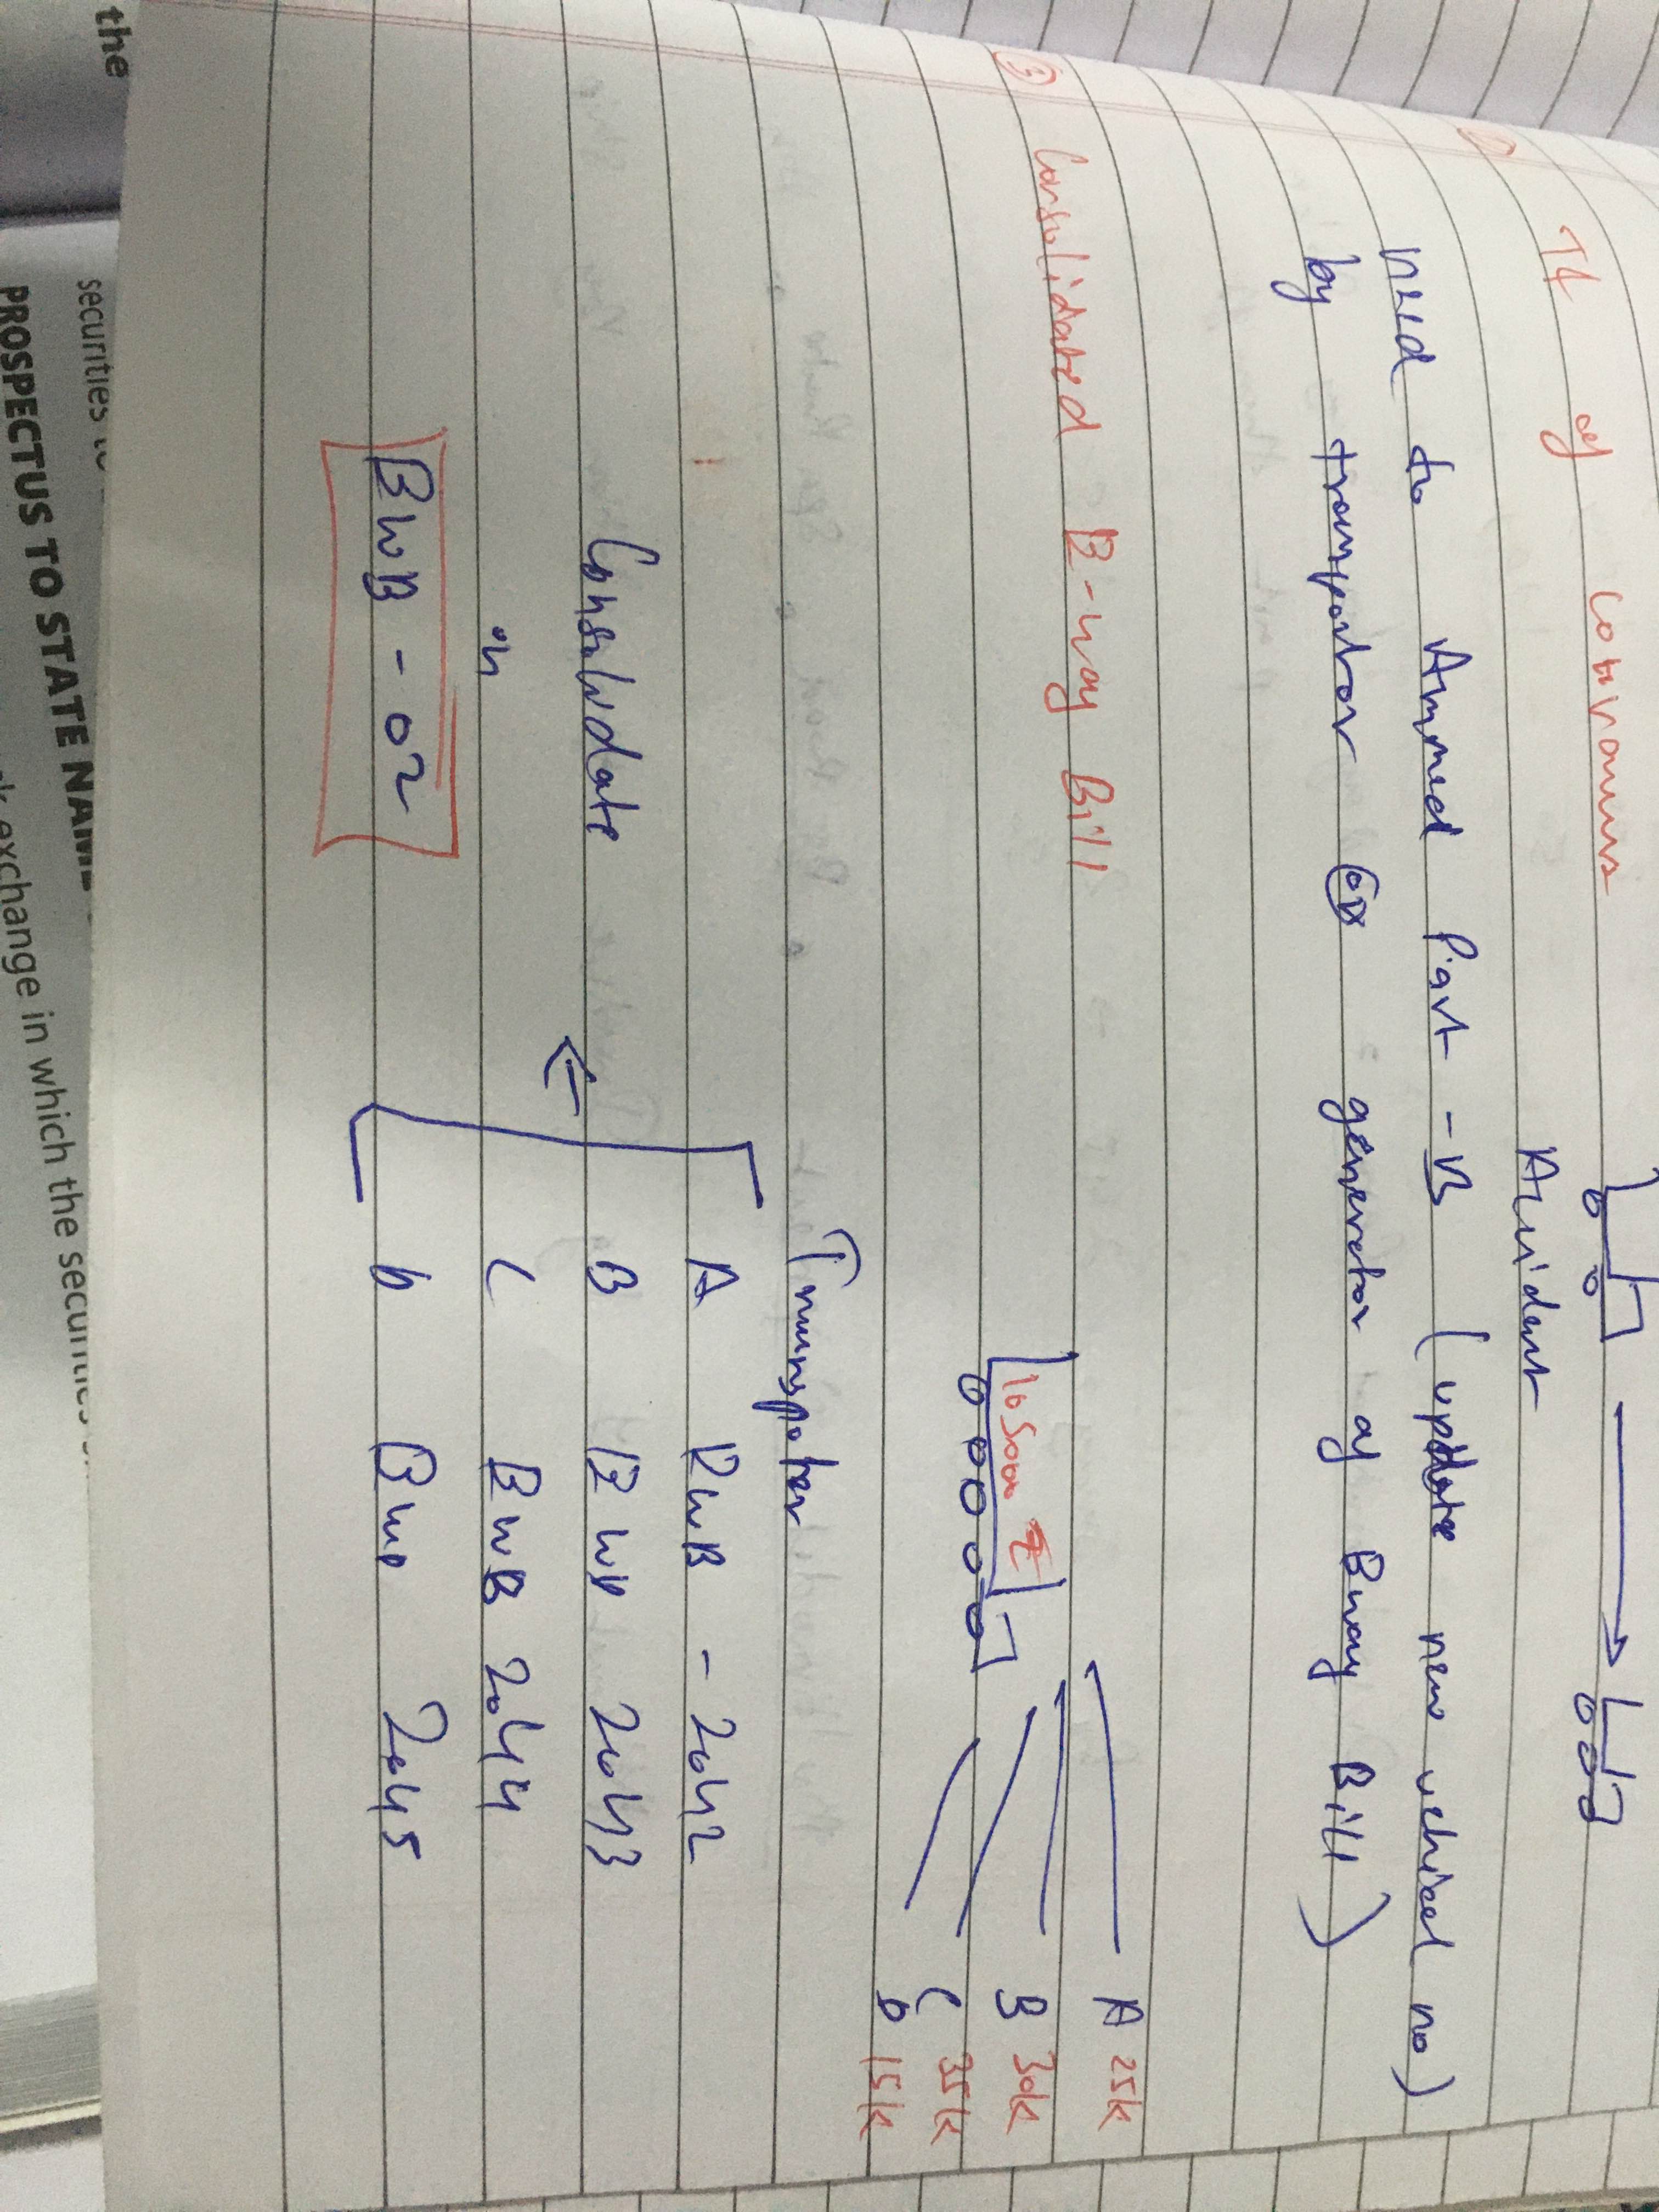 T4 of
Accident
need to Ammed Part - B (update new vehical no)
by transportor OR generator of Eway Bill)
③ Consolidated E-way Bill
A 25k
B 30k
C 35k
D 15k
105000 ₹
Transpoter
A EWB - 2042
B EWB 2043
C EWB 2044
D EWB 2045
Consolidate
in
EWB - 02
the
securities
PROSPECTUS TO STATE NAME
exchange in which the securities